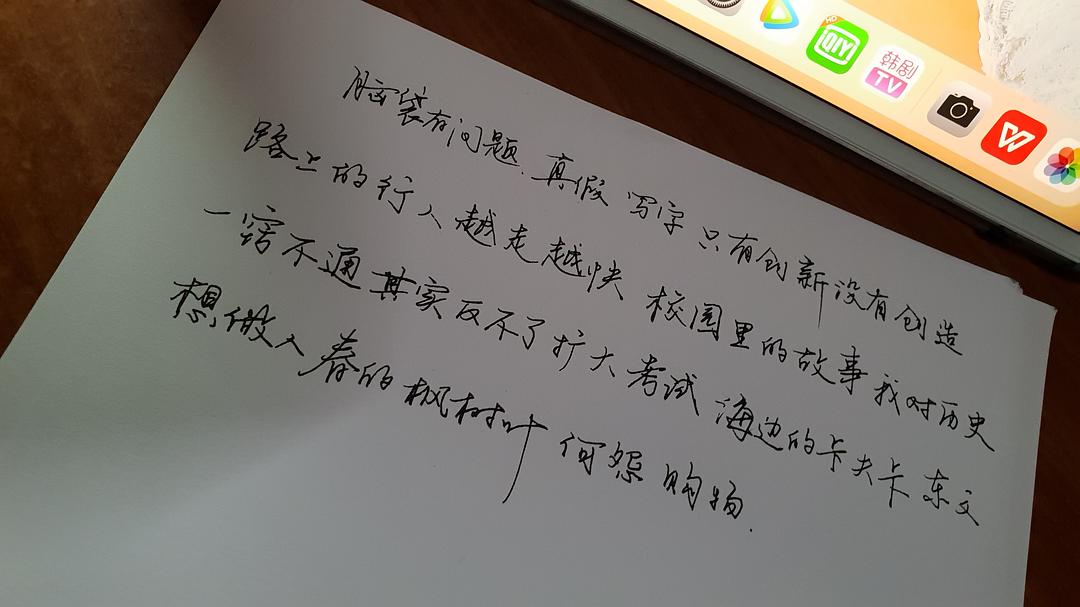 HD
iQIY
韩剧
TV
脑袋有问题.真假 写字 只有创新没有创造
路上的行人越走越快 校园里的故事 我对历史
一窍不通 其实反不了扩大考试 海边的卡夫卡 东文
想做人 春的枫树叶 何怨 购物.